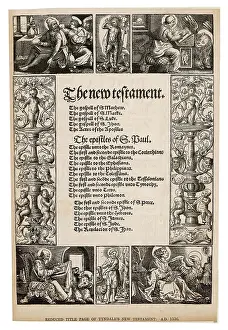 The new testament.
The gospell of S. Mathew.
The gospell of S. Marke.
The gospell of S. Luke.
The gospell of S. Jhon.
The Actes of the Apostles
The epistles of S. Paul.
The epistle unto the Romaynes.
The first and seconde epistle to the Corinthians
The epistle to the Galathians.
The epistle to the Ephesians.
The epistle to the
The epistle to the
The first and seconde epistle to the Tessalonians
The first and seconde epistle unto Tymothy.
The epistle unto Titus.
The epistle unto
The first and seconde epistle of S. Peter.
The thre epistles of S. Jhon.
The epistle unto the Hebrews.
The epistle of S. James.
The epistle of S. Jude.
The Revelacion of S. Jhon.
REDUCED TITLE PAGE OF TYNDALE'S NEW TESTAMENT. A.D.